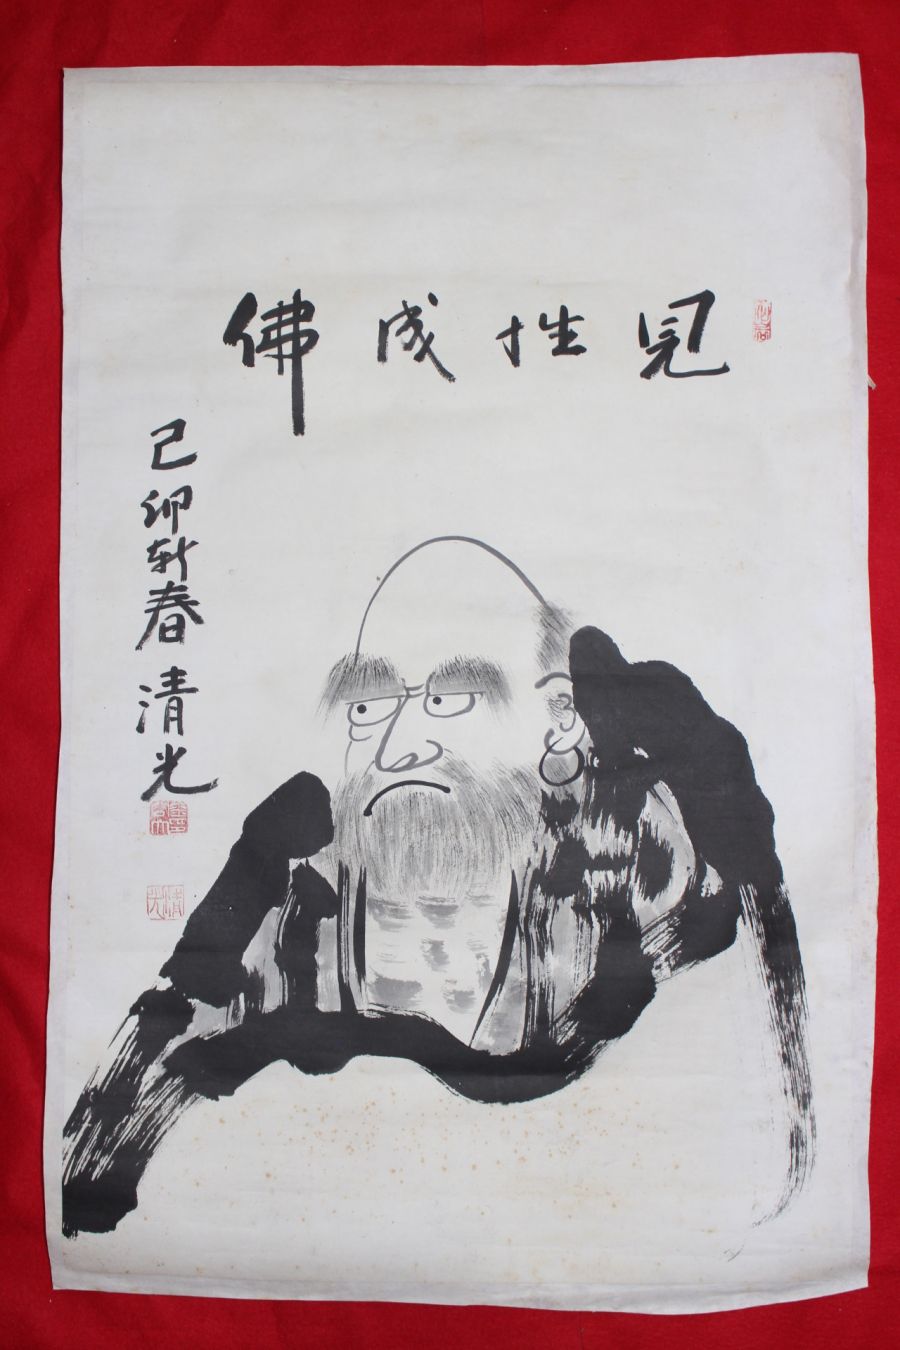 見性成佛
己卯新春 清光
清光